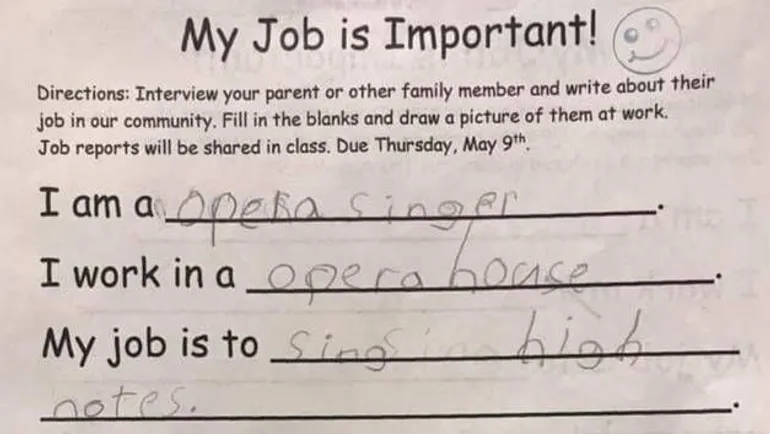 My Job is Important!
Directions: Interview your parent or other family member and write about their
job in our community. Fill in the blanks and draw a picture of them at work.
Job reports will be shared in class. Due Thursday, May 9th.
I am a opera singer.
I work in a opera house.
My job is to sing high
notes.